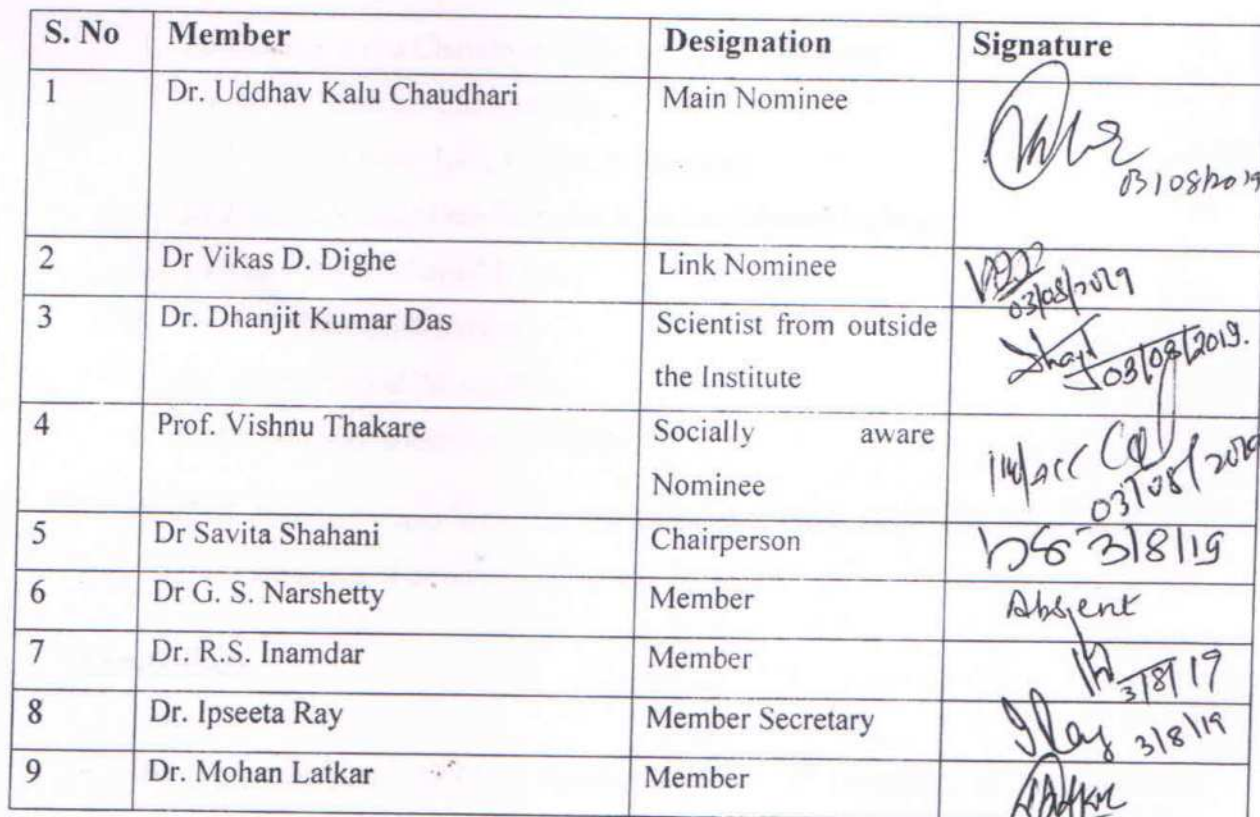 S. No Member Designation Signature
1 Dr. Uddhav Kalu Chaudhari Main Nominee
03/08/2019
2 Dr Vikas D. Dighe Link Nominee
03/08/2019
3 Dr. Dhanjit Kumar Das Scientist from outside
the Institute
03/08/2019.
4 Prof. Vishnu Thakare Socially aware
Nominee
03/08/2019
5 Dr Savita Shahani Chairperson 3/8/19
6 Dr G. S. Narshetty Member Absent
7 Dr. R.S. Inamdar Member 3/8/19
8 Dr. Ipseeta Ray Member Secretary IRay 3/8/19
9 Dr. Mohan Latkar Member